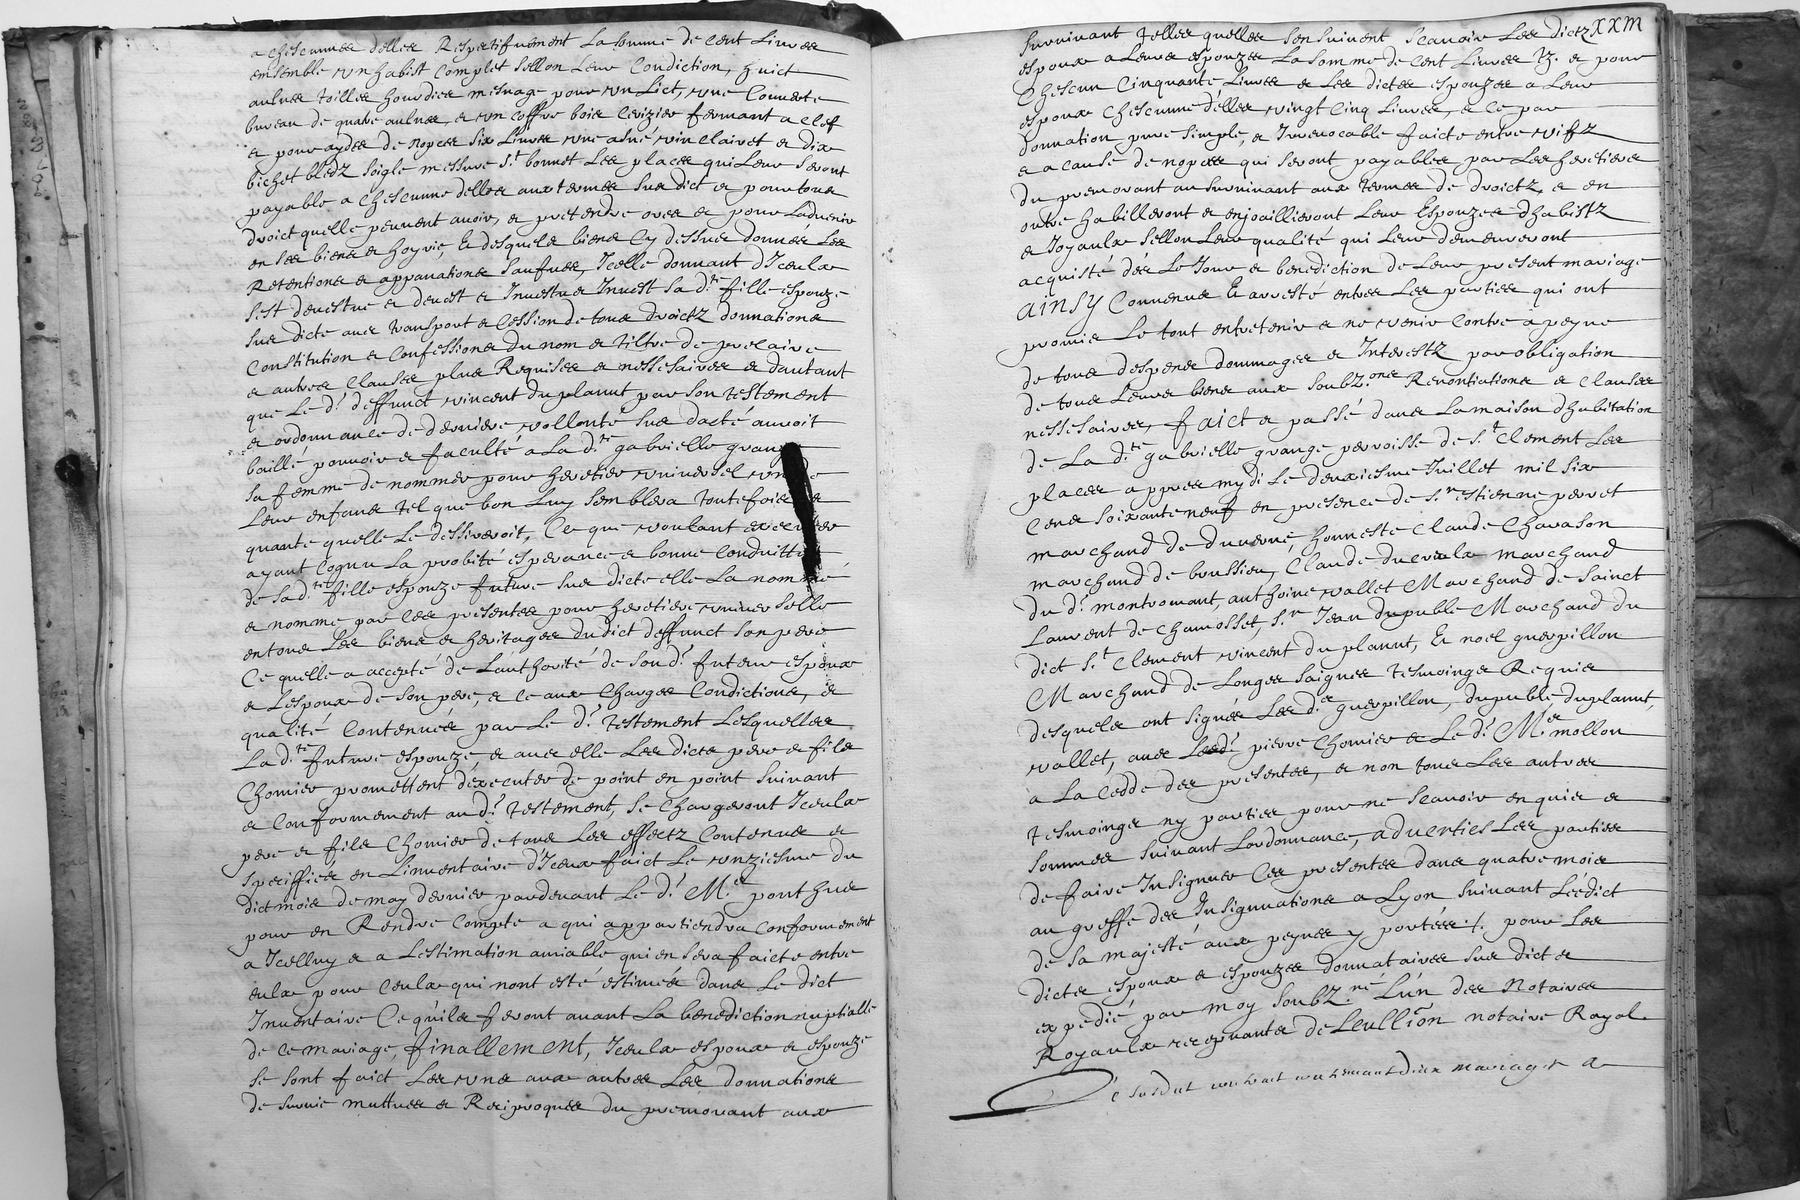 a chescunnes delles Respectifvement La somme de Cent Livres
ensemble un habist Complet sellon Leur Condiction, huict
aulnes toilles hourdies mesnage pour un Lict, une Couverte
bureau de quatre aulnes, et un coffre bois Cerizier fermant a clef
et pour aydes de nopces six Livres une asne vin clairet et dix
bichet bledz soigle messure St bonnot Les places qui Leur seront
payable a chescunne delles aux termes sus dict et pour tous
droict quelle peuvent avoir, et pretendre ores et pour Ladvenir
en ses biens et hoyrie, Et desquels biens Cy dessus donnés Les
Retentions et appanations saufvees, Icelle donnant d'Iceulx
sest devestue et devest et Investu et Invest sa d.te fille espouze
sus dicte avec transport et Cession de tous droictz donnations
Constitution et Confessions du nom et tiltre de precaire
et autres Clauses plus Requises et nessesaires et dautant
que Le d.t deffunct vincent duplanut par son testement
et ordonnance de derniere vollonté sus dacté auroit
baillé pouvoir et faculté a La d.te gabrielle grange
sa femme de nommer pour heretier universel un de
Leur enfans tel que bon Luy semblera toutefois et
quante quelle Le dessireroit, Ce que voulant executer
ayant Cognu La probité esperance et bonne Conduitte
de sa d.te fille espouze future sus dicte elle La nommé
et nomme par Ces presentes pour heretiere universelle
en tous Les biens et heritages du dict deffunct son pere
Ce quelle a accepté de Lauthorité de son d.t futur espoux
et Lespoux de son pere, et Ce aux Charges Condictions, et
qualité Contenues par Le d.t testement Lesquelles
La d.te future espouze, et avec elle Les dicts pere et fils
Chomier promettent dexecuter de point en point suivant
et Conformement au d.t testement, se Chargeront Iceulx
pere et fils Chomier de tous Les effectz Contenus et
speciffies en Linventaire d'Iceux faict Le unziesme du
dict mois de may dernier pardevant Le d.t M.re ponthus
pour en Rendre Compte a qui appartiendra Conformement
a Icelluy et a Lestimation amiable qui en sera faicte entre
eulx pour Ceulx qui nont esté estimés dans Le dict
Inventaire Ce quils feront avant La benediction nuptialle
de Ce mariage, finallement, Iceulx espoux et espouze
se sont faict Les uns aux autres Les donnations
de survie muttues et Reciproques du premourant aux
XXIII
survivant telles quelles sensuivent scavoir Les dictz
espoux a Leurs espouzes La somme de Cent Livres tz. et pour
Chescun Cinquante Livres et Les dictes espouzes a Leur
espoux Chescunne delles vingt Cinq Livres, et Ce par
donnation pure simple, et Irrevocable faicte entre vifz
et a Cause de nopces qui seront payables par Les heretiers
du premourant au survivant aux termes de droictz, et en
outre habilleront et enjoaillieront Leur Espouzes dhabistz
et Joyaulx sellon Leur qualité qui Leur demeureront
acquisté dés Le Jour et benediction de Leur present mariage
AINSY Convenus Et arresté entres Les parties qui ont
promis Le tout entretenir et ne venir Contre a peyne
de tous despens dommages et Interestz par obligation
de tous Leurs biens aux soubz.ons Renontiations et Clauses
nessesaires, faict et passé dans La maison dhabitation
de La d.te gabrielle grange perroisse de S.t Clement Les
places appres mydi Le deuxiesme Juillet mil six
Cens soixante neuf en presence de S.r estienne perret
marchand de duerne, honneste Claude Chavason
marchand de boussieu, Claude ducreulx marchand
du d.t montromant, anthoine vallet Marchand de sainct
Laurent de chamosset, S.r Jean dupuble Marchand du
dict S.t Clement vincent duplanut, Et noel guerpillon
Marchand de Longes saignes tesmoings Requis
desquels ont signés Les d.ts guerpillon, dupuble duplanut,
vallet, avec Lesd.t pierre Chomier et Le d.t M.re mollon
a La Cedde des presentes, et non tous Les autres
tesmoings ny parties pour ne scavoir enquis et
sommes suivant Lordonnance, adverties Les parties
de faire Insignuer Ces presentes dans quatre mois
au greffe des Insignuations a Lyon suivant Lédict
de sa majesté aux peynes y portées :/. pour Les
dicts espoux et espouzes donnataires sus dict et
expedié par moy soubz.né Lún des Notaires
Royaulx recepvants deLeullion notaire Royal